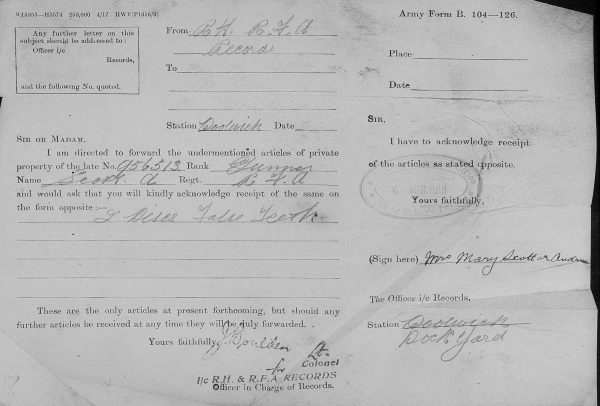 W15953—H3574 250,000 4/17 HWV(P1656/3)
Army Form B. 104—126.
Any further letter on this
subject should be addressed to:—
Officer i/c
Records,
and the following No. quoted.
From R.H. R.F.A
Records
To
Station Woolwich Date
SIR OR MADAM,
I am directed to forward the undermentioned articles of private
property of the late No. 956513 Rank Gunner
Name Scott. A Regt. R.F.A
and would ask that you will kindly acknowledge receipt of the same on
the form opposite:—
2 Discs False Teeth
These are the only articles at present forthcoming, but should any
further articles be received at any time they will be duly forwarded.
Yours faithfully,
Lt.
for Colonel
I/c R.H. & R.F.A RECORDS
Officer in Charge of Records.
Place
Date
SIR,
I have to acknowledge receipt
of the articles as stated opposite.
Yours faithfully,
(Sign here) Mrs Mary Scott or
The Officer i/c Records,
Station Woolwich
Dock Yard